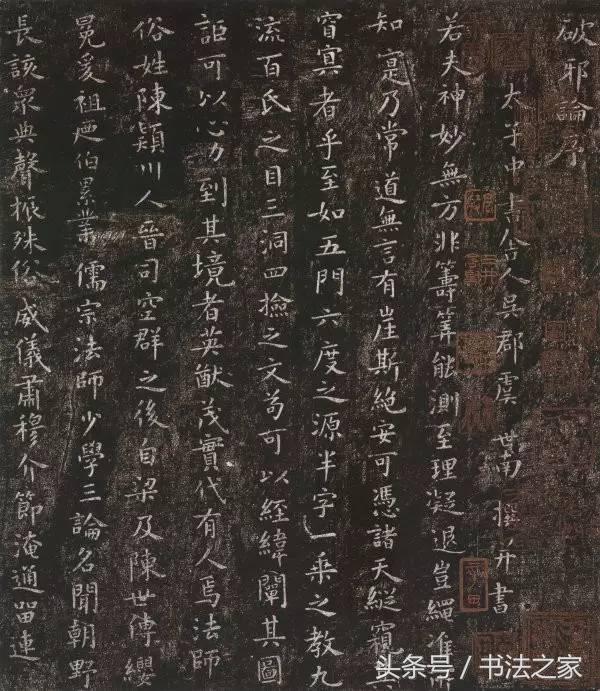 破邪論序
太子中書舍人吳郡虞世南撰并書
若夫神妙無方非籌筭能測至理凝退豈繩准所
知寔乃常道無言有崖斯絶安可憑諸天縱窺其
窅冥者乎至如五門六度之源半字一乘之教九
流百氏之目三洞四撿之文苟可以經緯闡其圖
詎可以心力到其境者英猷茂實代有人焉法師
俗姓陳潁川人晉司空群之後自梁及陳世傳纓
冕爰祖迺伯累業儒宗法師少學三論名聞朝野
長該眾典聲振殊俗威儀肅穆介節淹通留連
头条号 / 书法之家